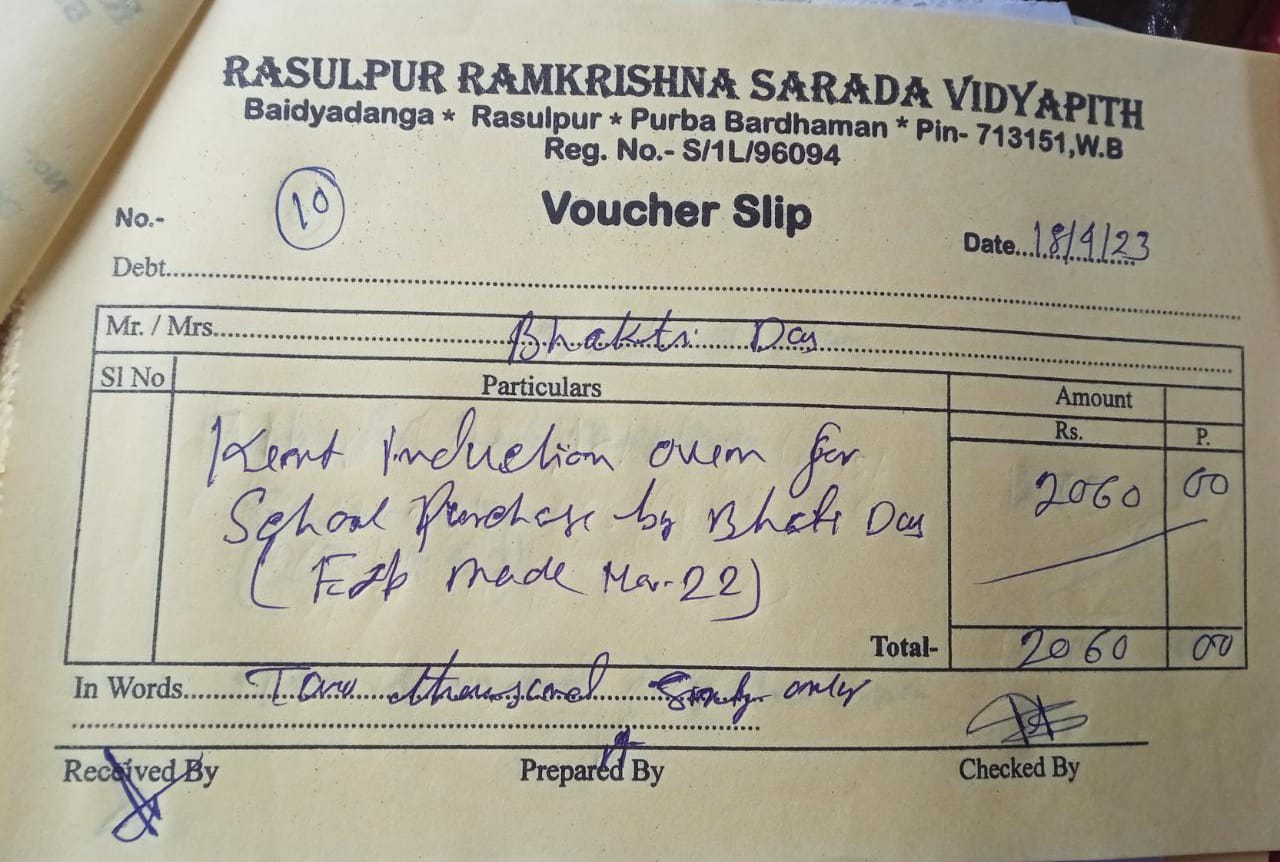 RASULPUR RAMKRISHNA SARADA VIDYAPITH
Baidyadanga * Rasulpur * Purba Bardhaman * Pin- 713151,W.B
Reg. No.- S/1L/96094
No.- 10 Voucher Slip Date...18/4/23
Debt.....
Mr. / Mrs..... Bhakti Das
Sl No Particulars Amount
Rs. P.
Kent Induction oven for 2060 00
School Purchase by Bhakti Das
(Exp made Mar-22)
Total- 2060 00
In Words..... Two thousand Sixty only
Received By Prepared By Checked By